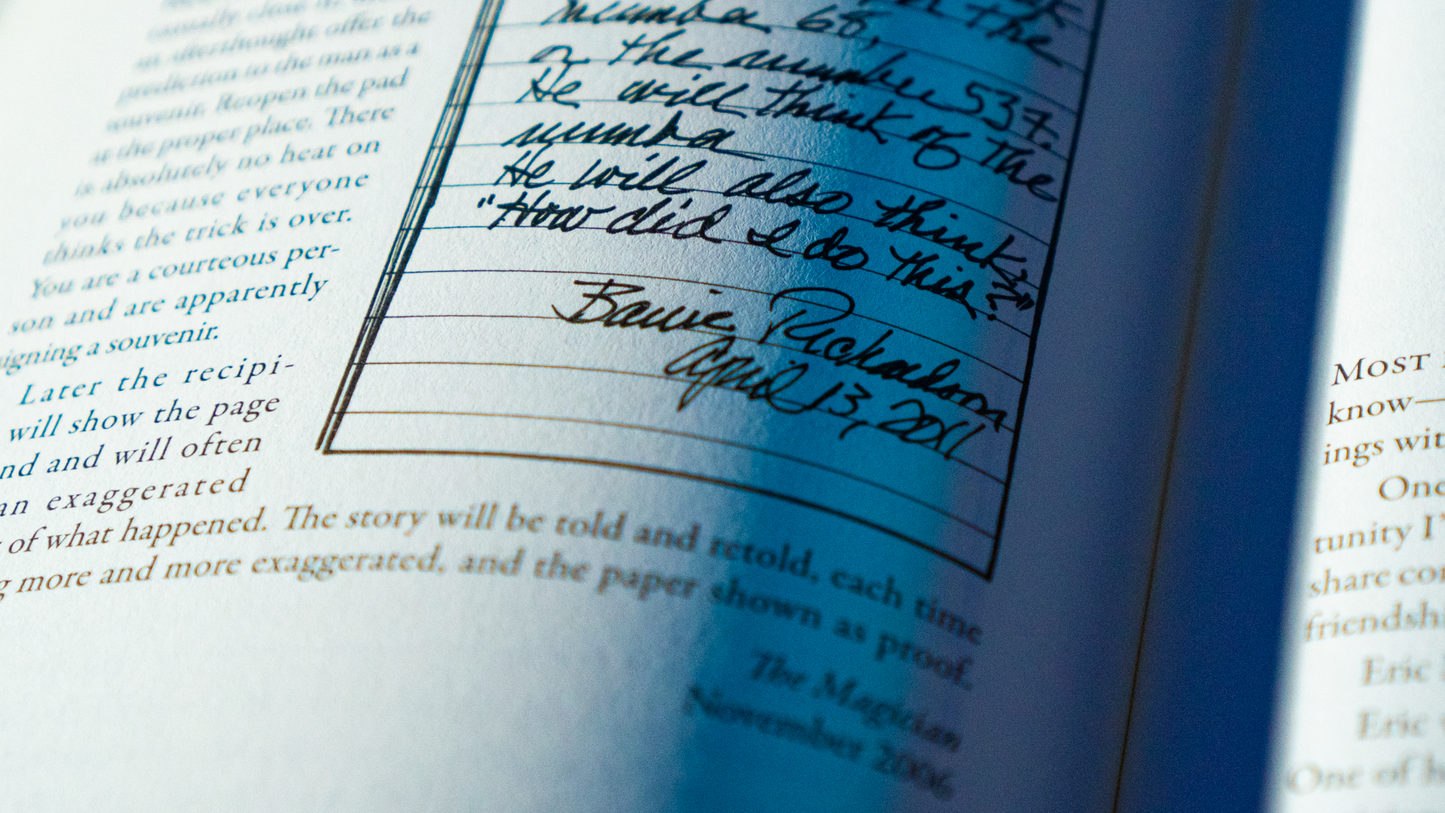 casually close it
an afterthought offer the
prediction to the man as a
souvenir. Reopen the pad
at the proper place. There
is absolutely no heat on
you because everyone
thinks the trick is over.
You are a courteous per-
son and are apparently
signing a souvenir.
Later the recipi-
will show the page
nd and will often
an exaggerated
of what happened. The story will be told and retold, each time
g more and more exaggerated, and the paper shown as proof.
The Magician
November 2006
the
number 68,
or the number 537.
He will think of the
number
He will also think,
"How did I do this?"
Barrie Richardson
April 13, 2011
MOST
know—
ings wit
One
tunity I'
share co
friendshi
Eric
Eric
One of h